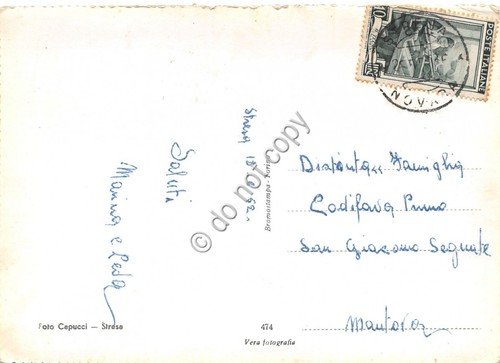 Stresa 18.6.52.
Saluti
Marina e
Distinta Famiglia
Codifava Primo
San Giacomo Segnate
Mantova
POSTE ITALIANE
10
Bromostampa - Torino
Foto Capucci - Stresa
474
Vera fotografia
do not copy